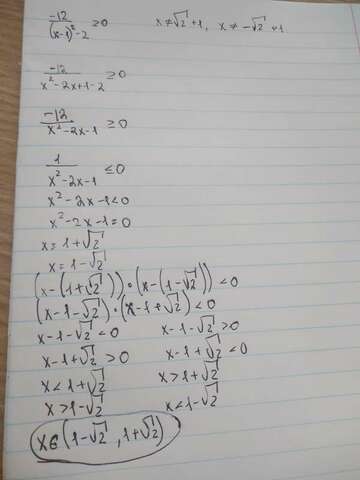 -12/((x-1)²-2) ≥0 x≠√2+1, x≠-√2+1
-12/(x²-2x+1-2) ≥0
-12/(x²-2x-1) ≥0
1/(x²-2x-1) ≤0
x²-2x-1<0
x²-2x-1=0
x=1+√2
x=1-√2
(x-(1+√2))•(x-(1-√2))<0
(x-1-√2)•(x-1+√2)<0
x-1-√2<0 x-1-√2>0
x-1+√2>0 x-1+√2<0
x<1+√2 x>1+√2
x>1-√2 x<1-√2
x∈(1-√2, 1+√2)